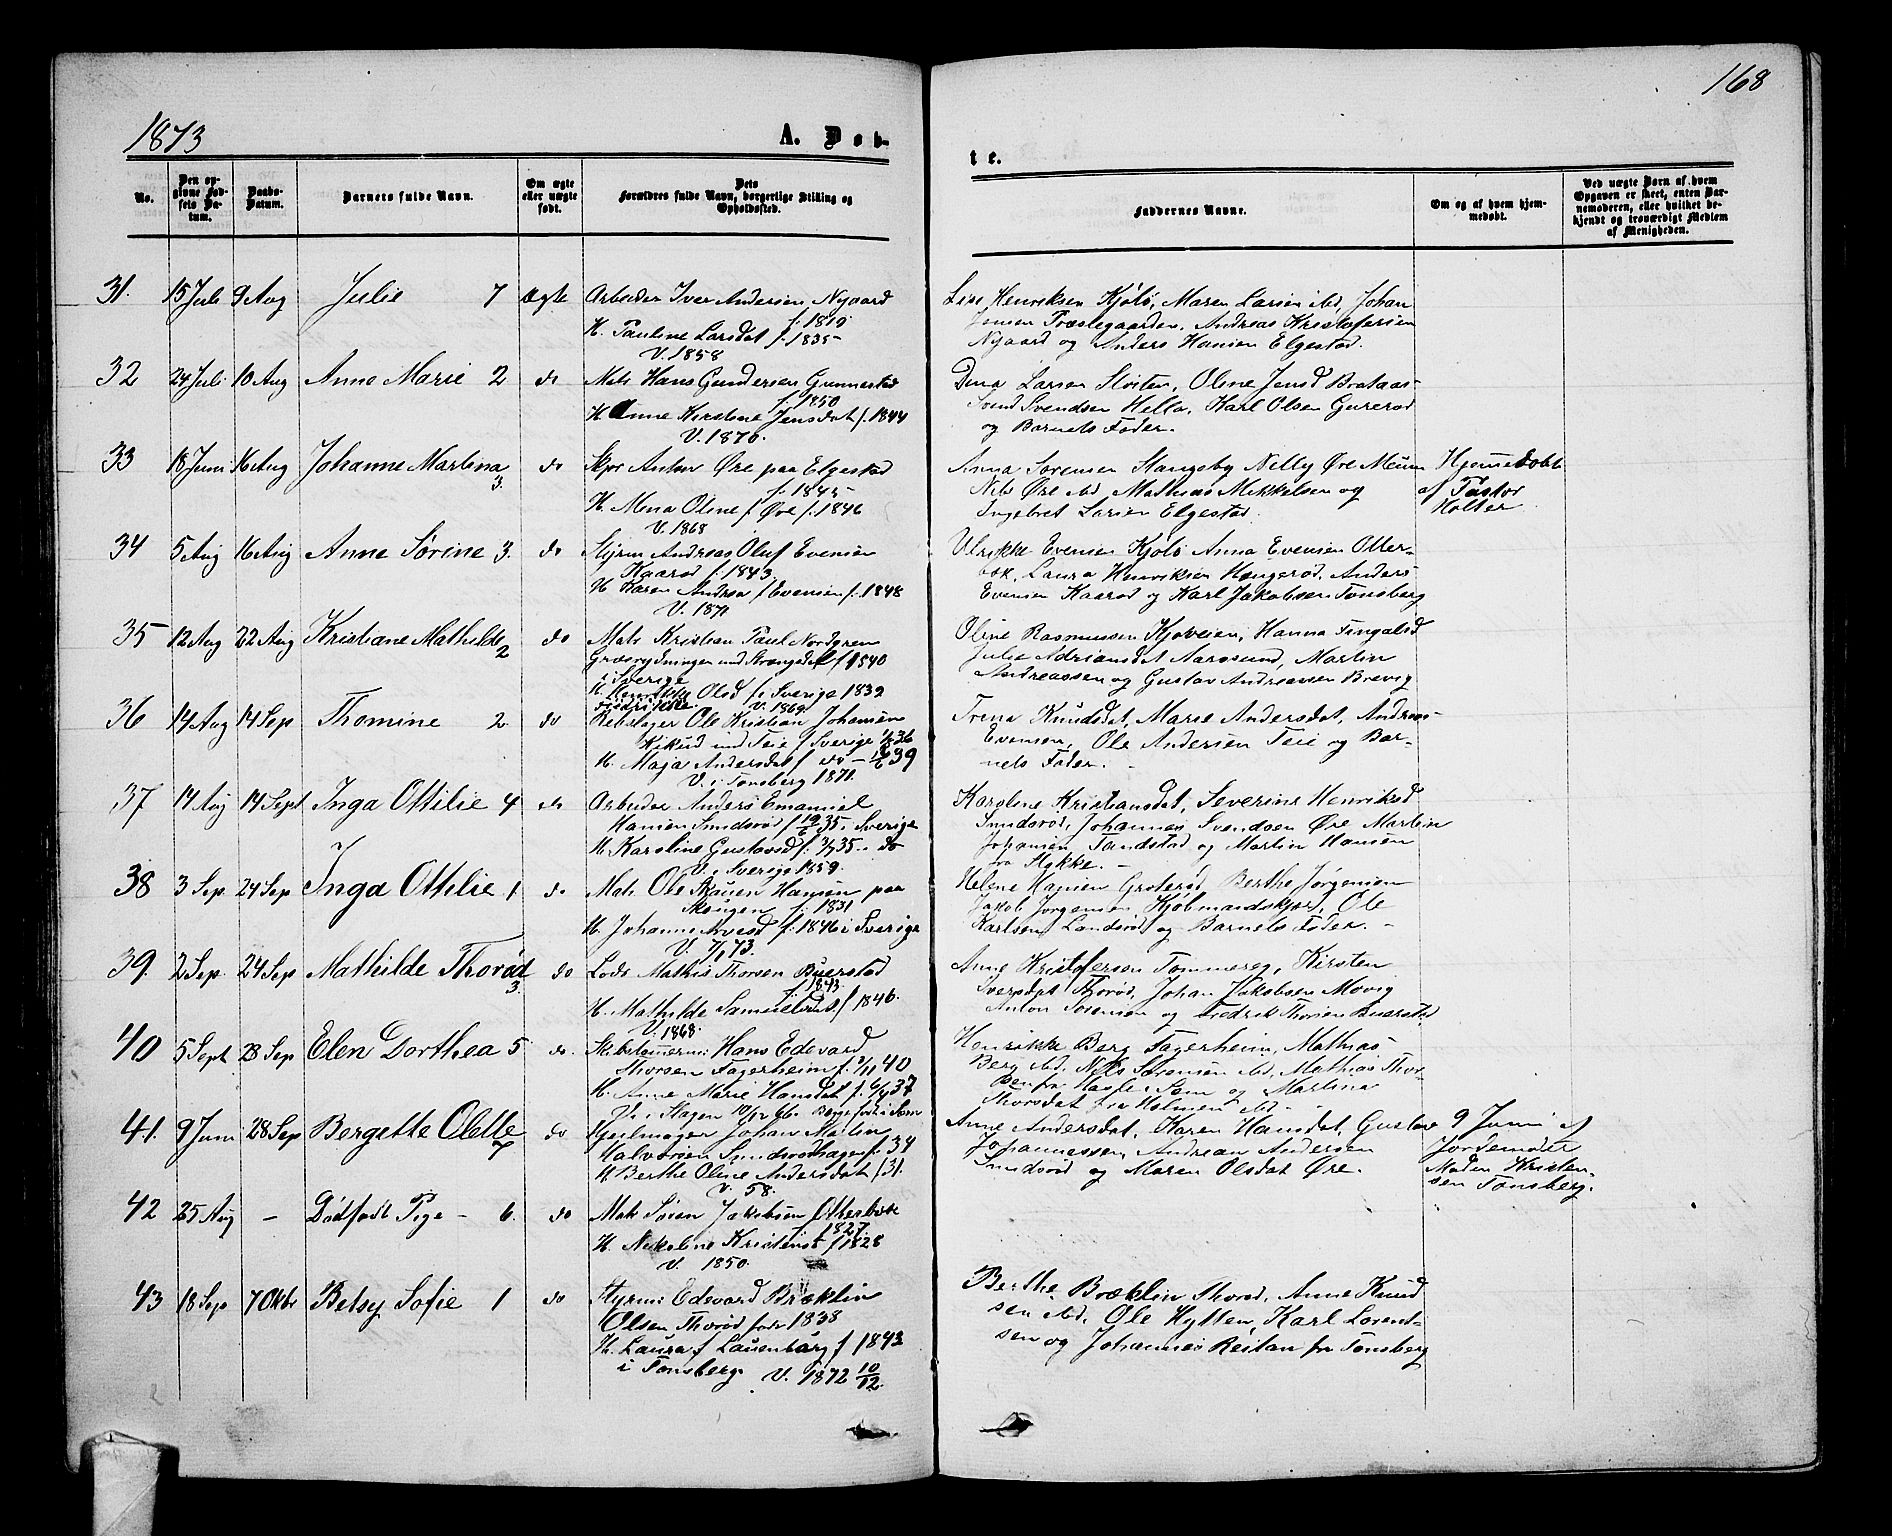 168
1873
A. Døb-
te.
No.
Den op-
givne Fød-
sels Da-
tum.
Daabs-
Datum.
Barnets fulde Navn.
Om ægte
eller uægte
født.
Dets
Forældres fulde Navn, borgerlige Stilling og
Opholdssted.
Faddernes Navne.
Om og af hvem hjem-
medøbt.
Ved uægte Børn af hvem
Opgaven er skeet, enten Bar-
nemoderen, eller hvilket be-
kjendt og troværdigt Medlem
af Menigheden.
31. 15 Juli 9 Aug Julie 7 Ægte
Arbeider Iver Andersen Nygaard
f. 1819
H. Pauline Larsdat f. 1835
V. 1858
Henriksen Kjølø, Maren Larsen ibd, Johan
Jensen Præstegaarden, Andreas Kristofersen
Nygaard og Anders Hansen Elgestad.
32 24 Juli 10 Aug Anne Marie 2 do
Matr Hans Gundersen Gunnestad
f. 1850
H. Anne Kirstine Jensdat f. 1844
V. 1870.
Dina Larsen Oline Jensd Brataas
Svend Svendsen Hella, Karl Olsen Gurerød
og Barnets Fader.
33 18 Juni 16 Aug Johanne Martina 3. do
Skpr Anker Øre paa Elgestad
f. 1845
H. Mina Oline f Øre f. 1846
V. 1868
Anna Sørensen Stangeby Nelly Øre
Nils Øre ibd, Mathias Mikkelsen og
Ingebret Larsen Elgestad.
Hjemmedøbt
af Pastor
Holter
34 5 Aug 16 Aug Anne Sørine 3. do
Styrm Andreas Oluf Evensen
Kaarød f. 1843.
H Karen Andrea f Evensen f. 1848
V. 1871
Ulrikke Evensen Kjølø Anna Evensen Otter-
bæk, Laura Henriksen Hengerød, Anders
Evensen Kaarød og Karl Jakobsen Tønsberg
35 12 Aug 22 Aug Kristiane Mathilde 2 do
Matr Kristian Paul Nordgren
Græsrydningen und f 1840
i Sverige
H. Henrikke Olsd f. Sverige 1839
Fredrikke. V. 1869.
Oline Rasmussen Kjøveien, Hanna Fingalsd
Julie Adriansdt Aarøsund, Martin
Andreassen og Gustav Andreassen Brevig
36 14 Aug 14 Sep Thomine 2. do
Rebslager Ole Kristian Johansen
Kikud und Teie f Sverige 36
H. Maja Andersdat f do - 39
V. i Tønsberg 1871.
Trina Knudsdat, Marie Andersdat, Andreas
Evensen, Ole Andersen Teie og Bar-
nets Fader. -
37 14 Aug 14 Sept Inga Ottilie 4 do
Arbeider Anders Emanuel
Hansen Smidsrød f 19/6 35 i Sverige
H. Karoline Gustavsd f. 35 .. do
V. i Sverige 1859.
Karoline Kristiansdat, Severine Henriksd
Smidsrød, Johannes Svendsen Øre Martin
Johansen Tandstad og Martin Hansen
fra Stykke. -
38 3 Sep 24 Sep Inga Ottilie 1 do
Matr Ole Skauen Hansen paa
Skougen f. 1831
H. Johanne Arvesd f. 1846 i Sverige
V. 7/1 73.
Helene Hansen Grøterød Berthe Jørgensen
Jakob Jørgensen Kjøbmandskjær, Ole
Karlsen Landsrød og Barnets Fader. -
39. 2 Sep. 24 Sep Mathilde Thorød 3. do
Lods Mathis Thorsen Buerstad
f 1843.
H. Mathilde Samuelsdat f 1846.
V. 1868.
Anne Kristofersen Tømmereg, Kirsten
Iversdat Thorød, Johan Jakobsen Movig
Anton Sørensen og Fredrik Thorsen Buerstad
40 5 Sept 28 Sep Elen Dorthea 5 do.
Skibstømerm Hans Edevard
Thorsen Fagerheim f. 40
H. Anne Marie Hansdat f. 37
V. i Slagen 10/12 66. Begge født i Sem
Henrikke Berg Fagerheim, Mathias
Berg ibd, Nils Sørensen ibd, Mathias Thor-
sen fra Hasle i Sem og Martina
Thorsdat fra Holmen ibd -
41. 9 Juni 28 Sep Bergitte Olette 7 do
Seilmager Johan Martin
Halvorsen Smidsrødhagen f. 34
H Berthe Oline Andersdat f 31.
V. 58.
Anne Andersdat, Karen Hansdat, Gustav
Johannessen, Andrean Andersen
Smidsrød og Maren Olsdat Øre.
9 Juni af
Jordemoder
Maden Kristen-
sen Tønsberg.
42 25 Aug - Dødfødt Pige - 6. do
Matr Søren Jakobsen Otterbæk
f. 1827
H. Nikoline Kristensd f 1828
V. 1850.
43 18 Sep 7 Oktbr Betsy Sofie 1 do
Styrm Edevard Bræklin
Olsen Thorød født 1838
H. Laura f Lauenborg f 1843
i Tønsberg. V. 1872 10/12
Berthe Bræklin Thorød, Anne Knud
sen ibd, Ole Hytten, Karl Lorent-
sen og Johannes Reitan fr Tønsberg